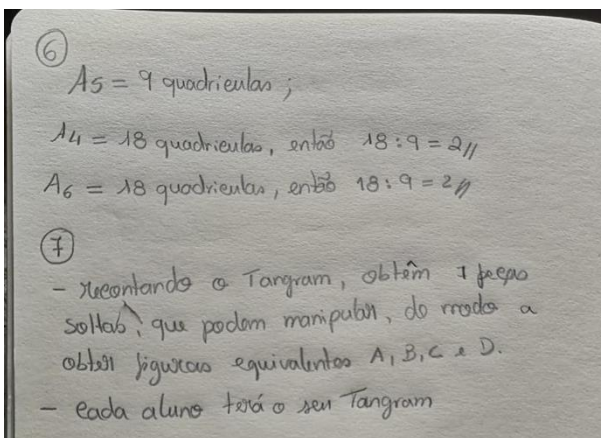 6
A5 = 9 quadriculas ;
A4 = 18 quadriculas, então 18 : 9 = 2//
A6 = 18 quadriculas, então 18 : 9 = 2//
7
- recontando o Tangram, obtêm 7 peças
soltas, que podem manipular, do modo a
obter figuras equivalentes A, B, C e D.
- cada aluno terá o seu Tangram